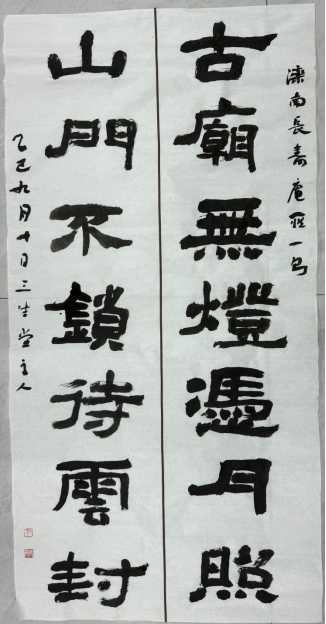 滦南長壽庵联一
古廟無燈憑月照
山門不鎖待雲封
乙巳九月十日三生堂主人